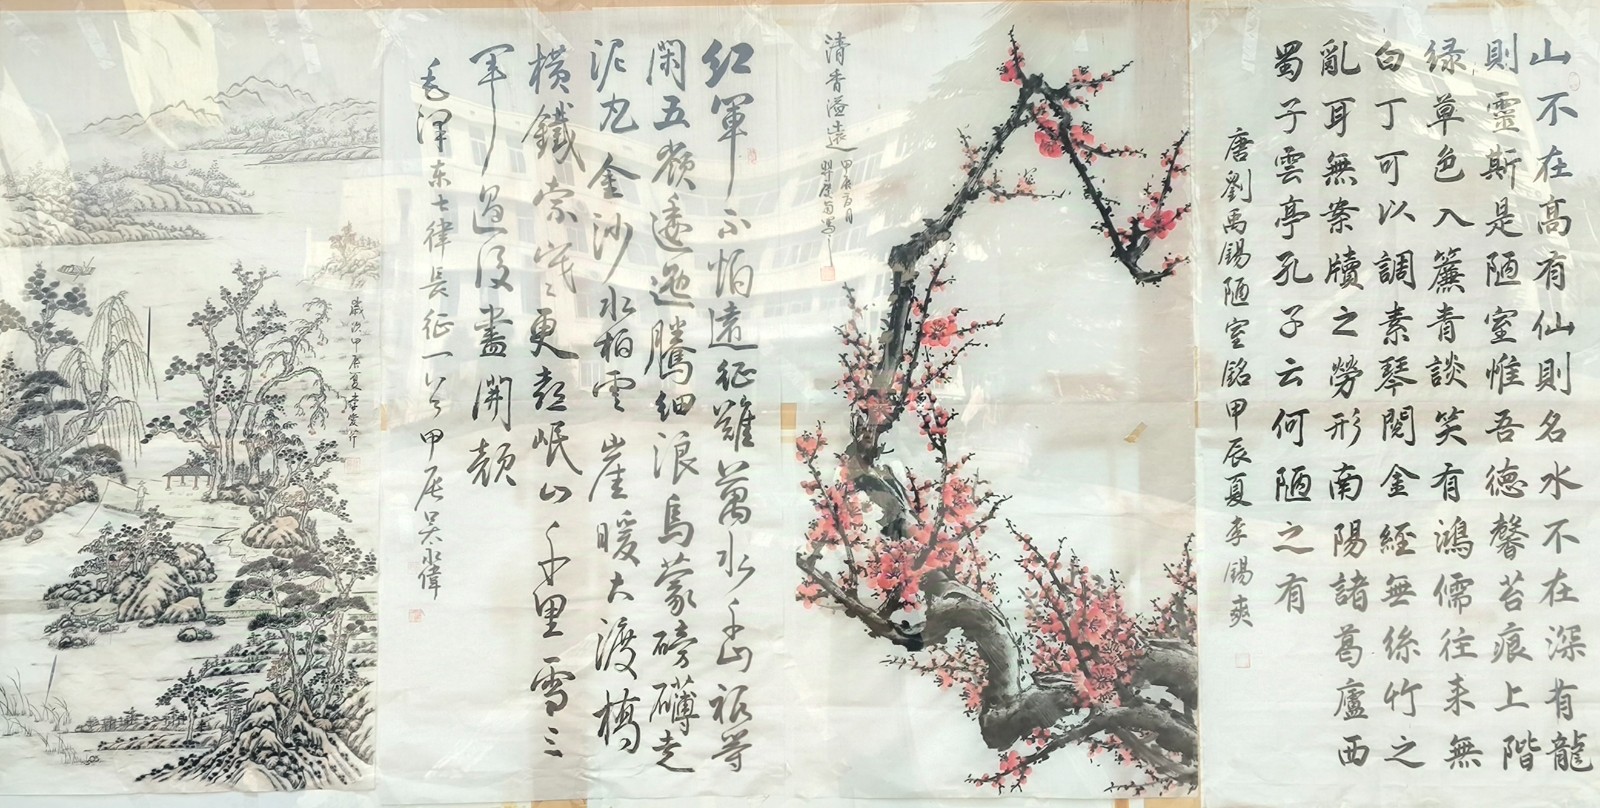 山不在高有仙則名水不在深有龍
則靈斯是陋室惟吾德馨苔痕上階
绿草色入簾青談笑有鴻儒往来無
白丁可以調素琴閱金經無絲竹之
亂耳無案牘之勞形南陽諸葛廬西
蜀子雲亭孔子云何陋之有
唐劉禹錫陋室銘甲辰夏李錫爽
清香溢遠
甲辰
红軍不怕遠征難萬水千山祇等
閑五嶺逶迤騰细浪烏蒙磅礴走
泥丸金沙水拍雲崖暖大渡橋
横鐵索寒更喜岷山千里雪三
軍過後盡開颜
毛澤东七律長征一首甲辰吴永偉
歲次甲辰夏李